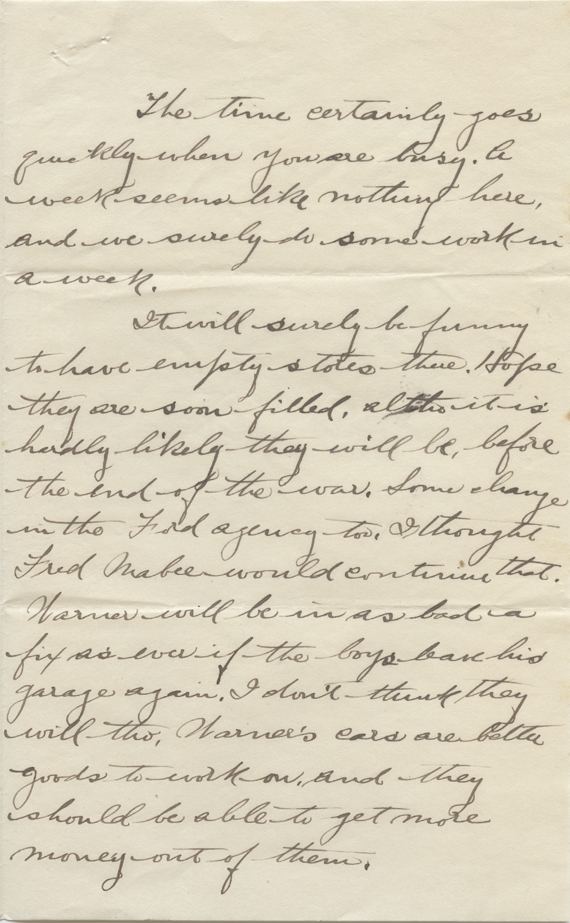 The time certainly goes
quickly when you are busy. A
week seems like nothing here,
and we surely do some work in
a week.
It will surely be funny
to have empty stores there. Hope
they are soon filled, altho it is
hardly likely they will be, before
the end of the war. Some change
in the Ford agency too. I thought
Fred Mabee would continue that.
Warner will be in as bad a
fix as ever if the boys leave his
garage again. I don't think they
will tho. Warner's cars are better
goods to work on, and they
should be able to get more
money out of them.